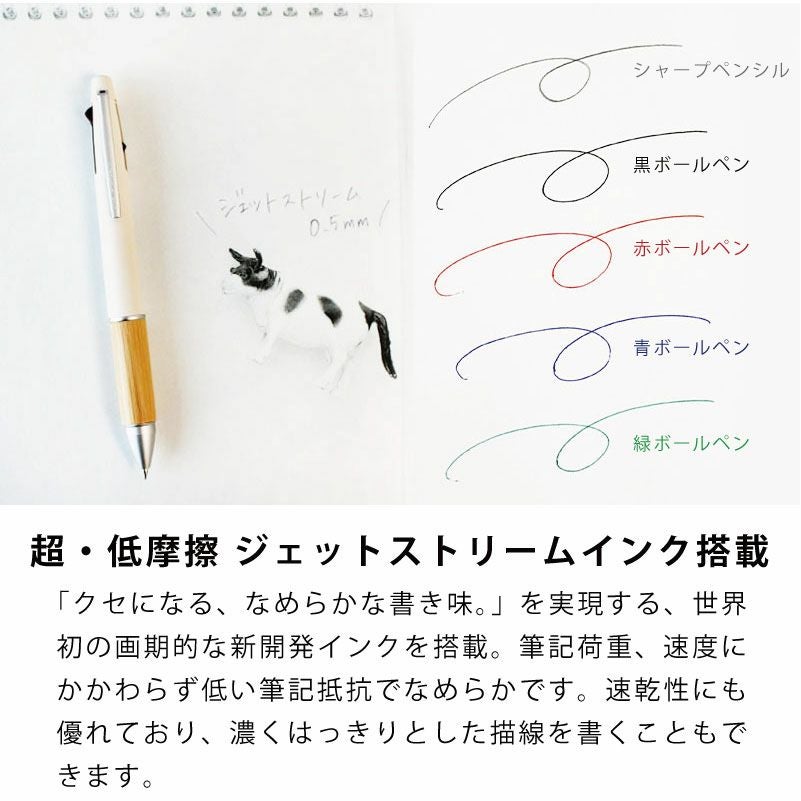 シャープペンシル
黒ボールペン
ジェットストリーム
0.5mm
赤ボールペン
青ボールペン
緑ボールペン
超・低摩擦 ジェットストリームインク搭載
「クセになる、なめらかな書き味。」を実現する、世界
初の画期的な新開発インクを搭載。筆記荷重、速度に
かかわらず低い筆記抵抗でなめらかです。速乾性にも
優れており、濃くはっきりとした描線を書くこともで
きます。